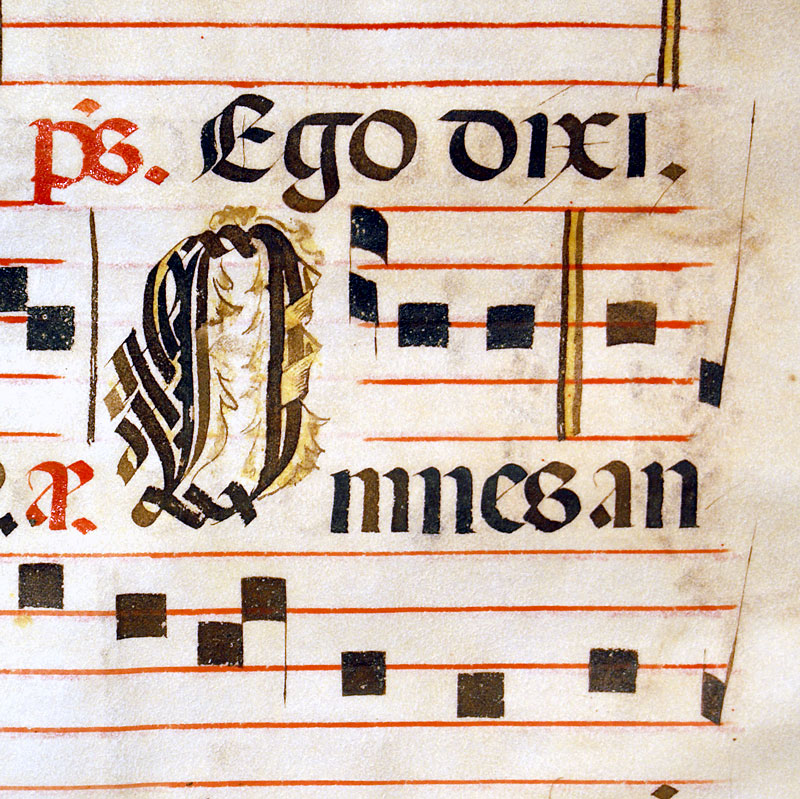 ps. Ego dixi.
a. Omnes an